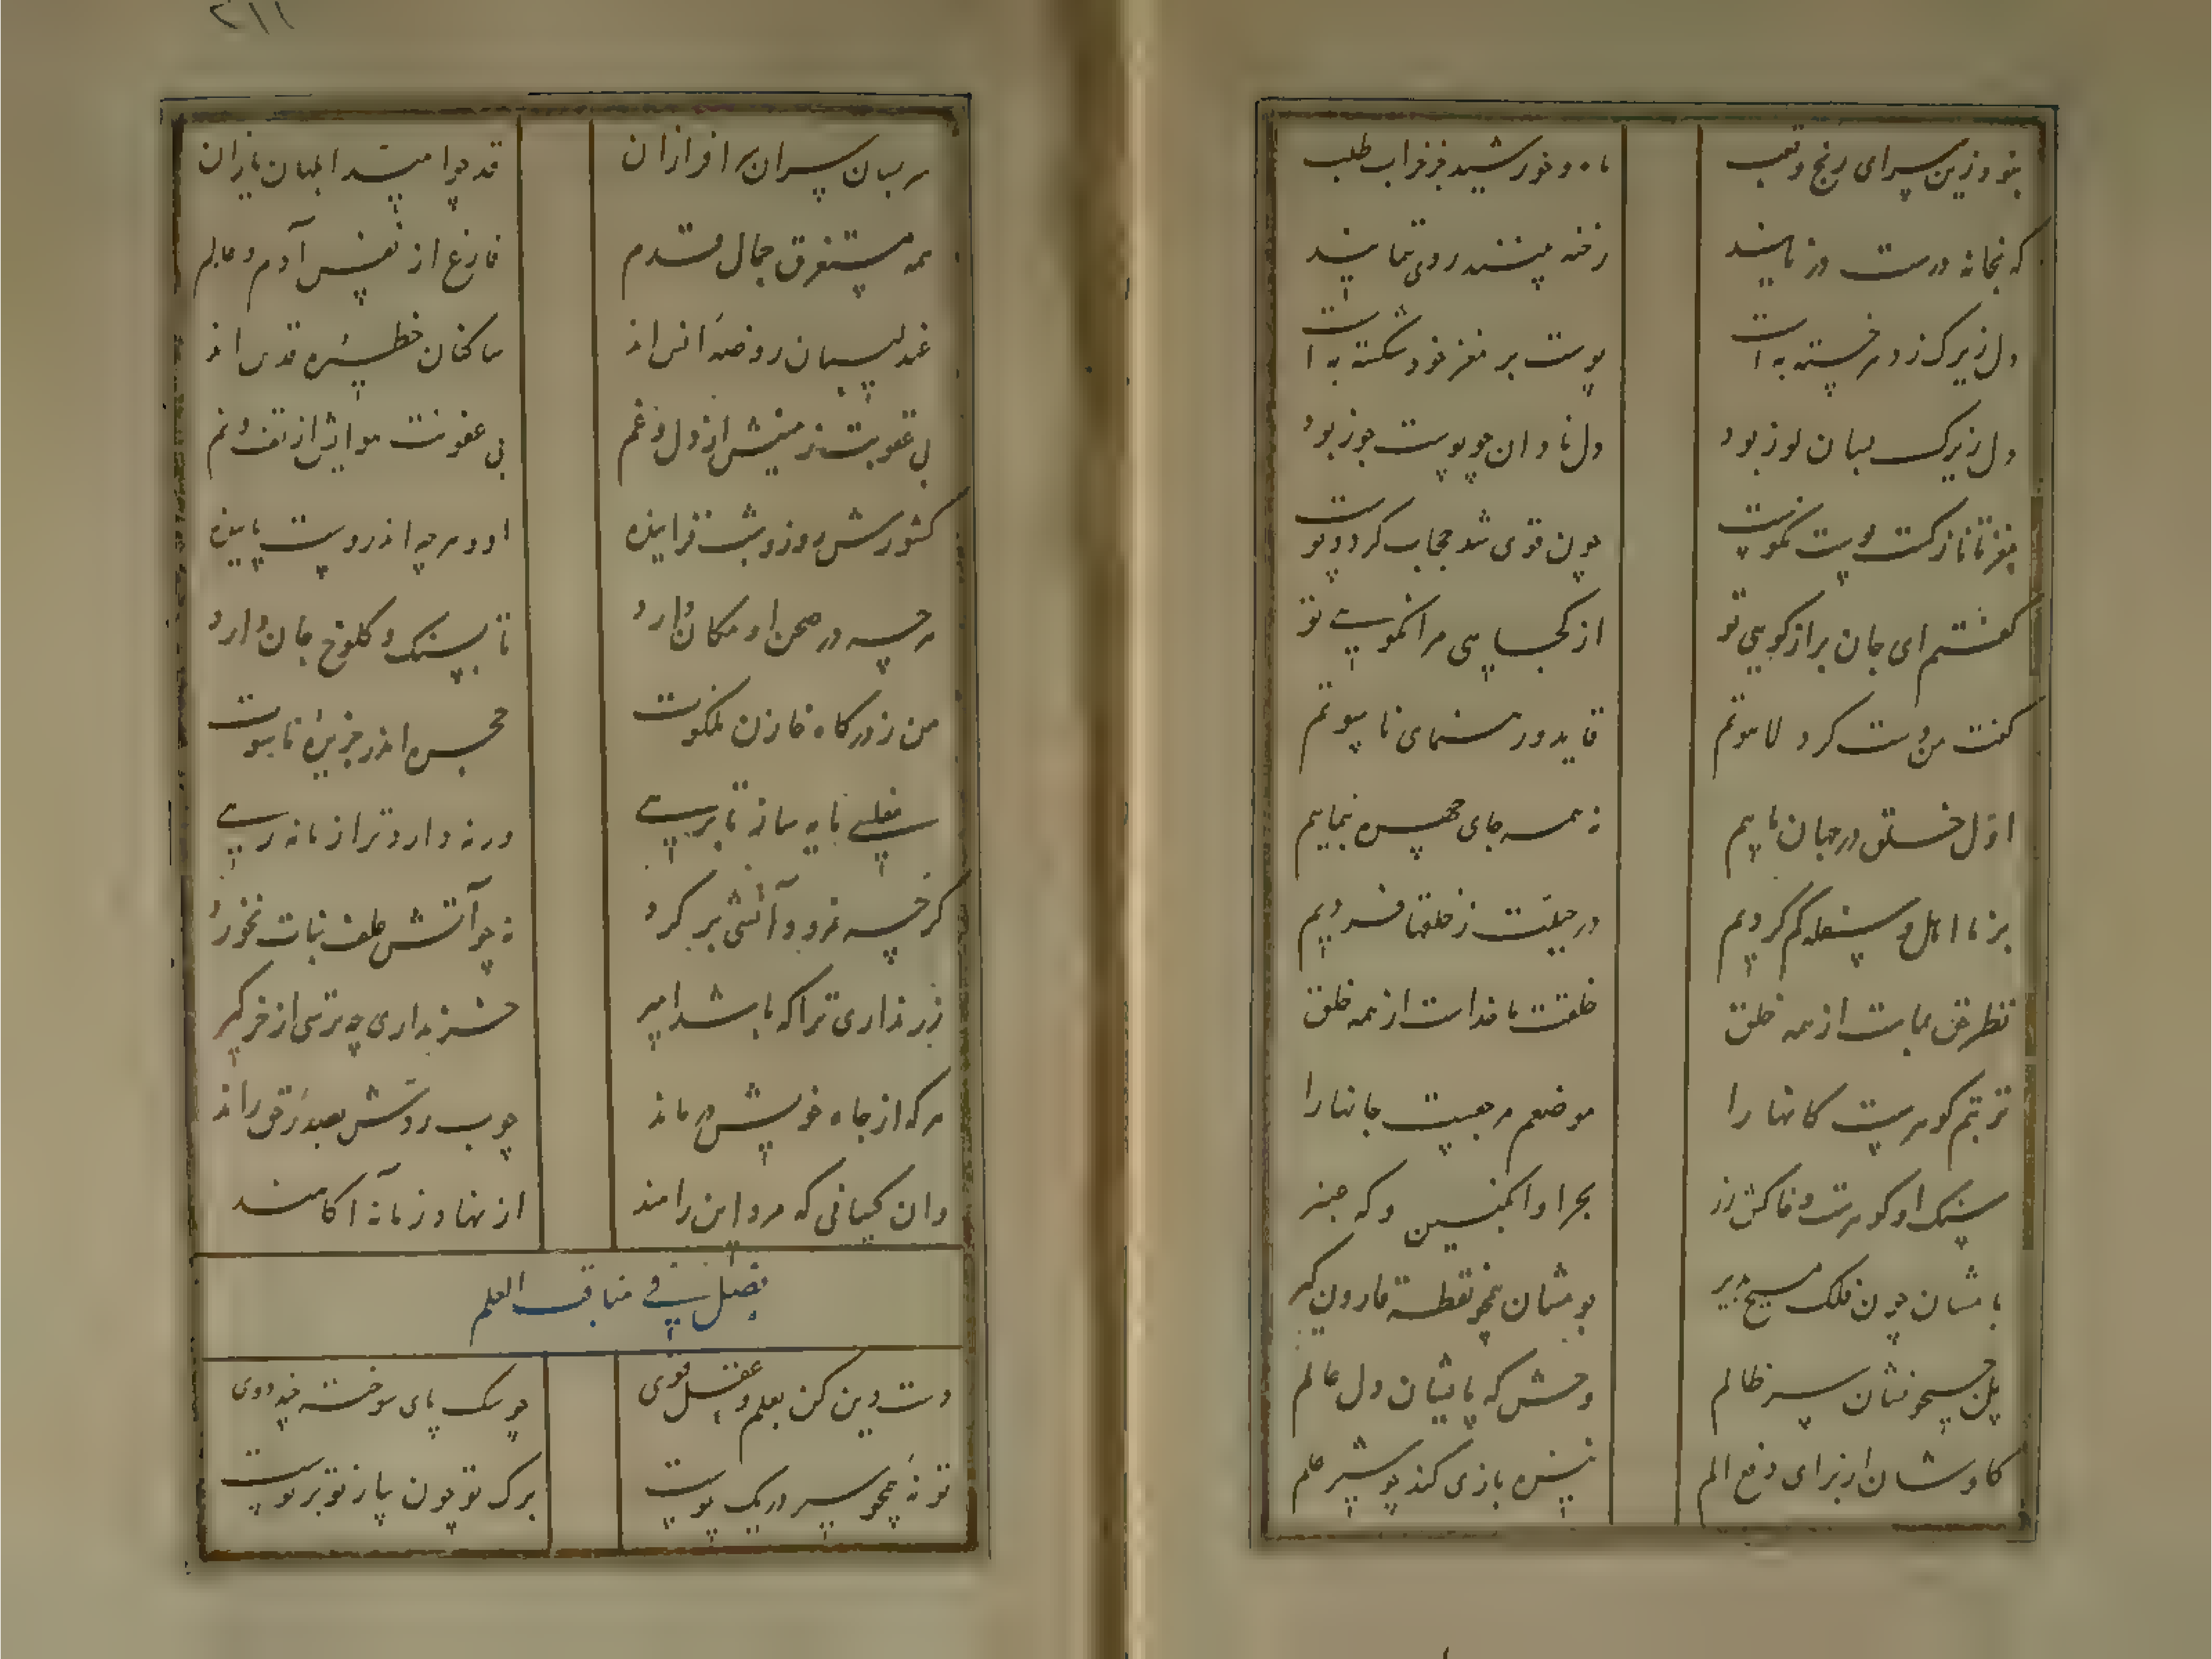 بتو وزین سرای رنج وتعب
ماه وخورشید جز خراب طلب
که نجانه درست در نایند
رخنه بینند روی بنمایند
دل زیرک زدهر خسته به است
پوست بر مغز خود شکسته به است
دل زیرک بسان لوز بود
دل نادان چو پوست جوز بود
مغز تا نازکست پوست نکوست
چون قوی شد حجاب گردد پوست
گفتم ای جان براز کویی تو
از کجایی مرا نکویی تو
گفت من دست کرد لاهوتم
قاید و رهنمای ناسوتم
اوّل خلق در جهان ماییم
نه همه جای چهره بنماییم
بر نااهل و سفله کم کردیم
در جبلت ز خلقها فردیم
نظر حق بماست از همه خلق
خلقت ما جداست از همه خلق
تربتم گوهرست کانها را
موضعم مرجعست جانها را
سنک او گوهرست و خاکش زر
بحر او انکبین و که عنبر
بامشان چون فلک مسیح پذیر
بومشان همچو نقطه قارون گیر
پلّ جیحونشان سر ظالم
وحش که پایشان دل عالم
کاوشان از برای دفع الم
نیزه بازی کند بو شیر علم
۲۱۱
همه بسان سران سرافرازان
قد چو امید ابلهان یازان
همه مستغرق جمال قدم
فارغ از نفس آدم و عالم
عندلیبان روضهٔ انس اند
ساکنان حظیرهٔ قدس اند
بی عقوبت زمینش از دل و غم
بی عفونت هوایش از تف و نم
کشورش روز و شب فزاینده
اودهرچه اندروست پاینده
هرچه در صحن او مکان دارد
تا بسنک و کلوخ جان دارد
من ز درگاه خازن ملکوت
حجره اندر جزیرهٔ ناسوت
مفلسی مایه ساز تا برسی
ورنه دارد ترا زمانه رسی
گرچه نمرود آتشی بر کرد
نه چو آتش علف نبات نخورد
زر نداری ترا که باشد میر
خر نداری چه ترسی از خر گیر
هرکه از چاه خویش درماند
چوب ردّش بصدر قوراند
وان کسانی که مرد این راهند
از نهاد زمانه آکاهند
فصل فی مناقب العلم
دست دین کن بعلم و عقل قوی
چو سک پای سوخته چه دوی
تو نهٔ همچو سیر در یک پوست
برک تو چون پیاز توبرتوست